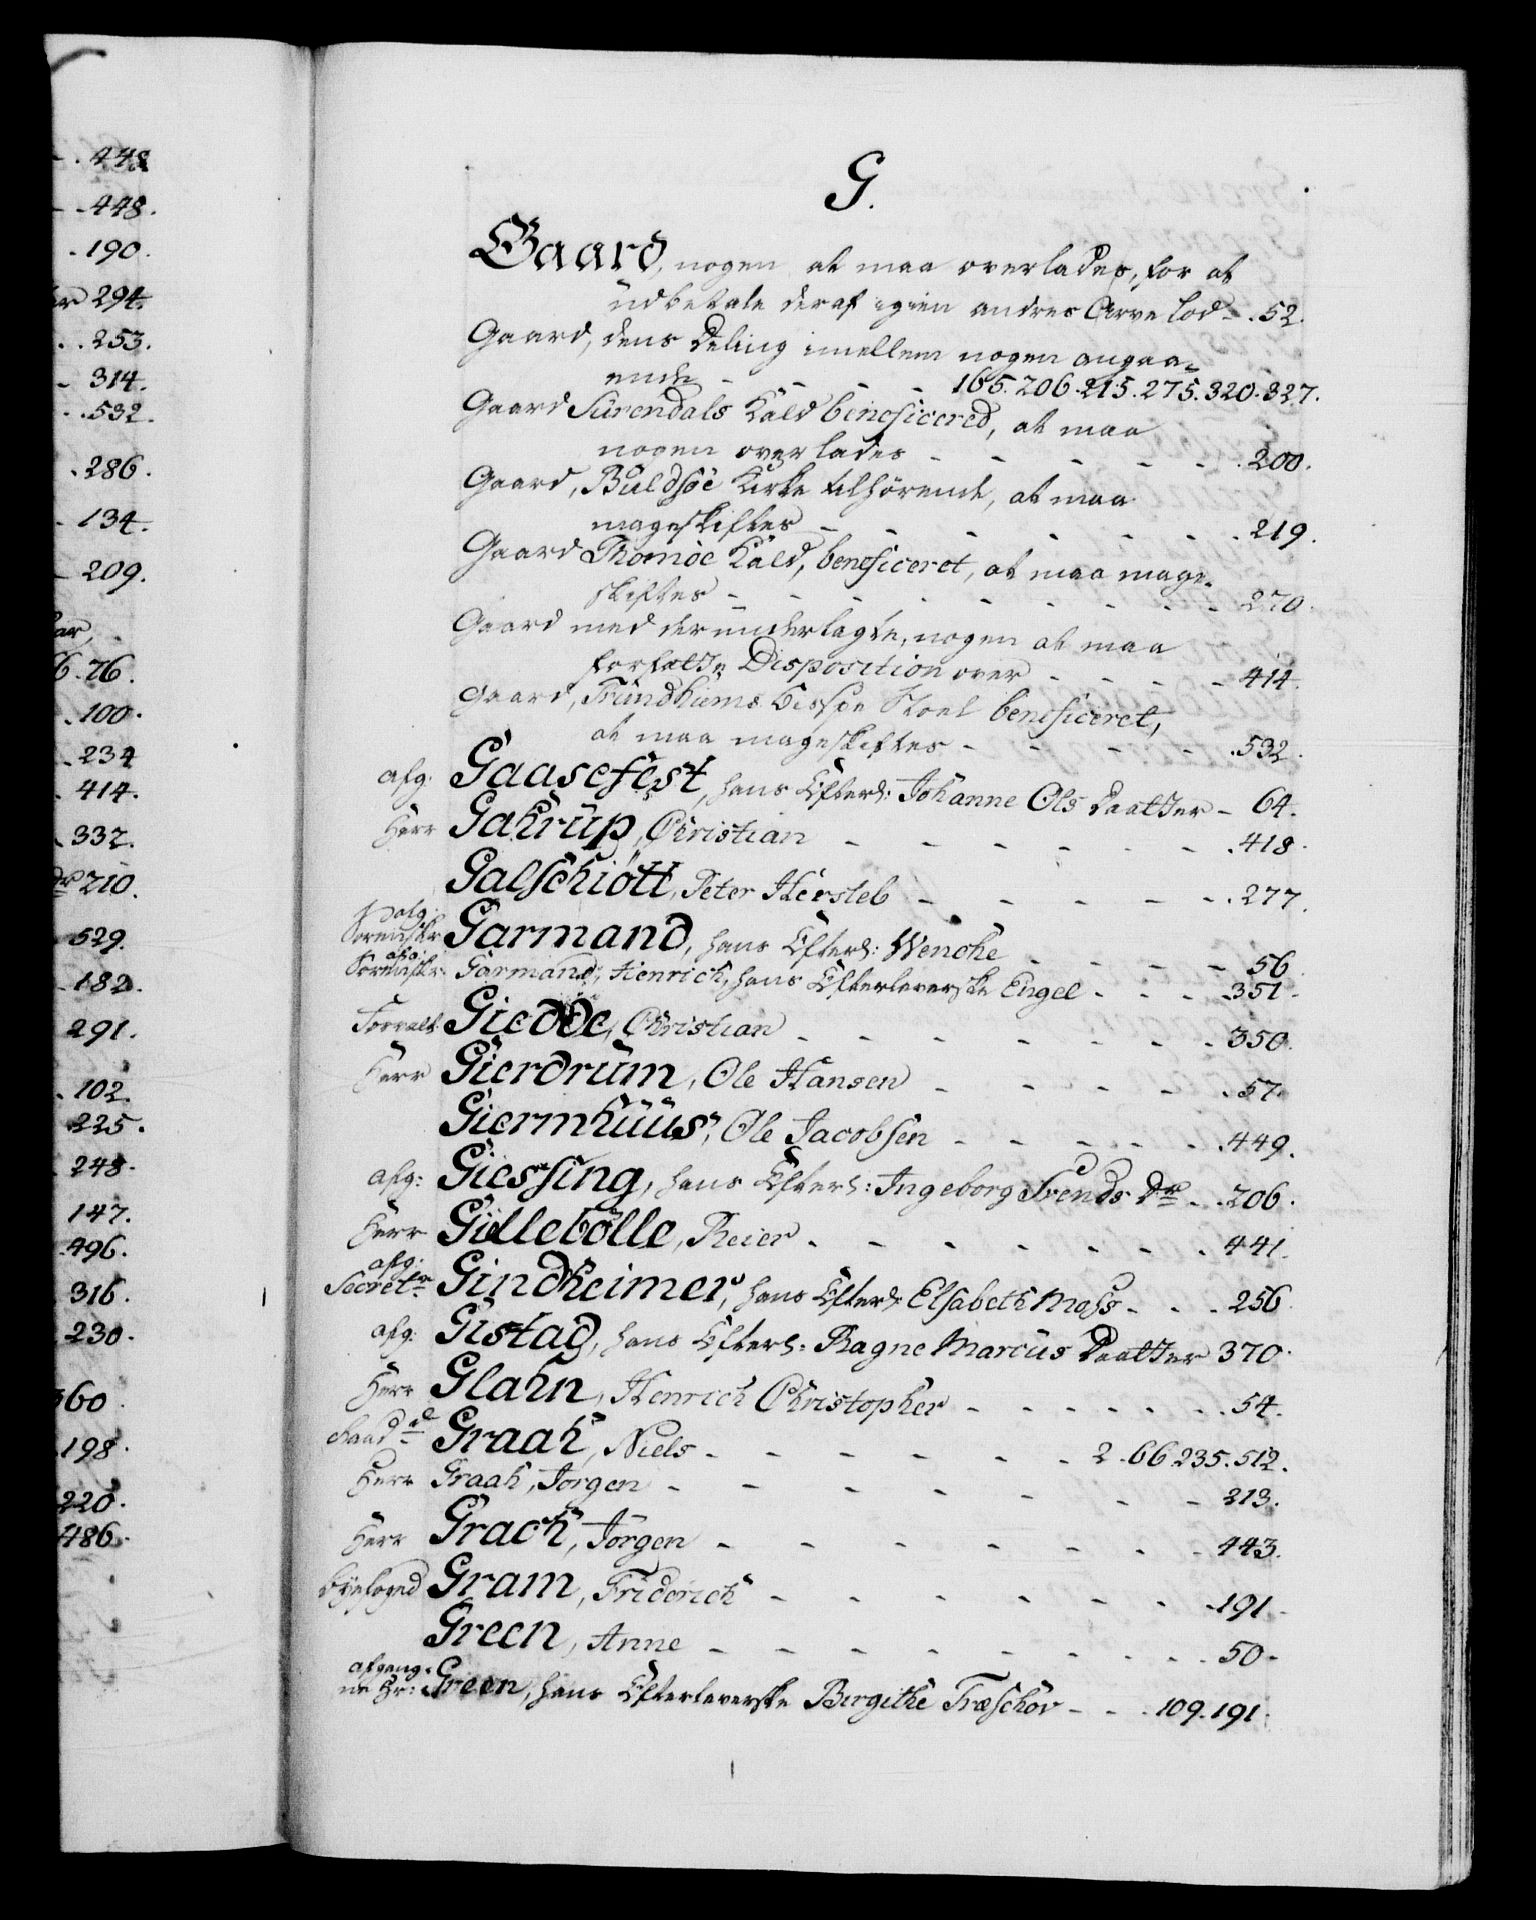 448
448.
190.
294.
253.
314.
532.
286.
134.
209.
76.
100.
234
414.
332.
210.
529.
182.
291.
102.
225.
248.
147.
496.
316.
230.
360
198.
220.
486.
G.
Gaard, nogen at maa overlades, for at
udbetale deraf igien andres Arve Lod - . 52.
Gaard, dens Deling imellem nogen angaa-
ende - - - - 165. 206. 215. 275. 320. 327.
Gaard Surendals Kald beneficered, at maa
nogen overlades - - - - - . 200.
Gaard, Buldsöe Kirke tilhörende, at maa
mageskiftes - - - - - - . 219.
Gaard Thomöe Kald, beneficeret, at maa mage-
skiftes - - - - - - - - 270.
Gaard med der underlagte, nogen at maa
forfatte Disposition over - - - - 414.
Gaard, Trundhiems Bispe Stoel beneficeret,
at maa mageskiftes - - - - . 532.
afg. Gaasefest, hans Efterl: Johanne Ols Daatter - 64.
Herr Gahrup, Christian - - - - - . 418.
Galschiött, Peter Hersleb - - - - - . 277.
afg: Sorenskr Garmand, hans Efterl: Wenche - - - - 56
afg: Sorenskr. Garmand, Henrich, hans Efterleverske Engel - - - . 351.
Forvalt. Giedde, Christian - - - - - - - 350.
Herr Gierdrum, Ole Hansen - - - - - . 57.
Giermhuus, Ole Jacobsen - - - - - . 449.
afg: Giessing, hans Efterl: Ingeborg Svends Dr - . 206.
Herr Gillebölle, Reier - - - - - - . 441.
afg: Secretr Gindheimer, hans Efterl: Elsabeth Moss - . . 256.
afg: Gistad, hans Efterl: Ragne Marcus Daatter 370.
Herr Glahn, Henrich Christopher - - - - - . 54.
Raad Graah, Niels - - - - - - 2. 66. 235. 512.
Herr Graah, Jorgen - - - - - - - 213.
Herr Grach, Jörgen - - - - - - . 443.
Byefoged Gram, Friderich - - - - - - . 191.
Green, Anne - - - - - - - . . 50.
afgang-
ne Hr: Green, hans Efterleverske Birgithe Træschov - - . 109. 191.